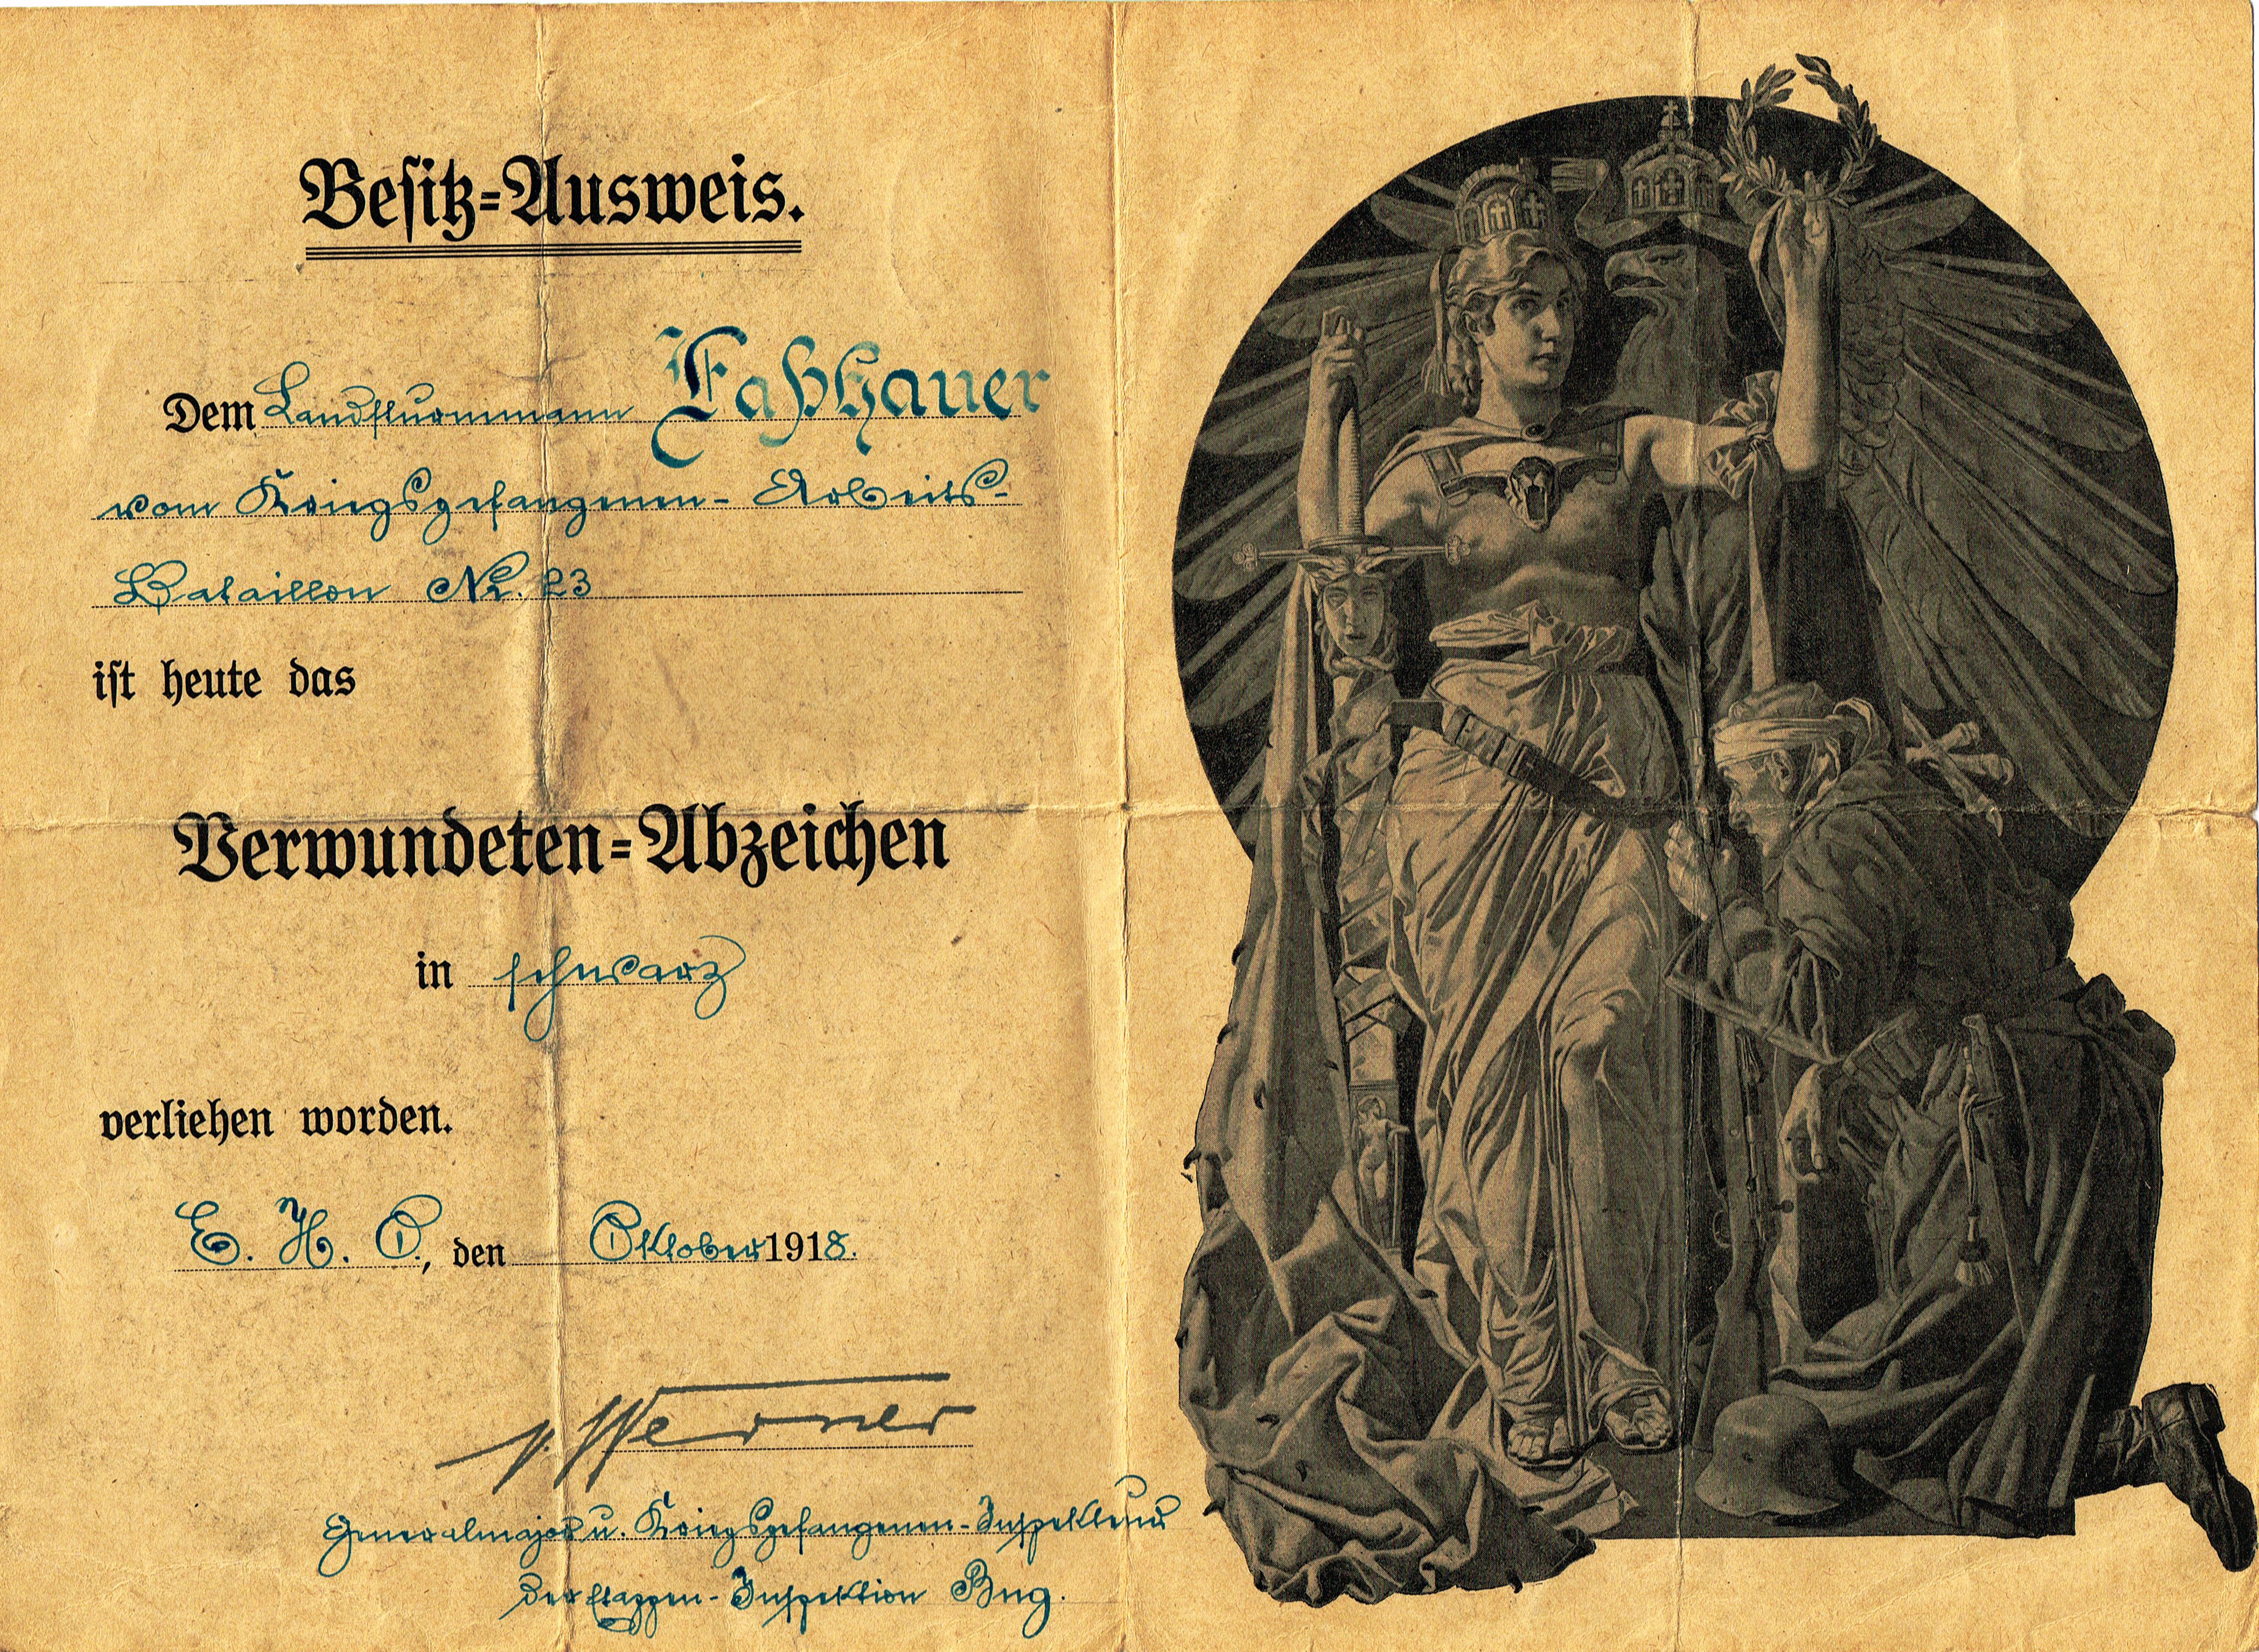 Besitz-Ausweis.
Dem Landsturmmann Faßhauer
vom Kriegsgefangenen-Arbeits-
Bataillon Nr. 23
ist heute das
Verwundeten-Abzeichen
in schwarz
verliehen worden.
E. H. O., den Oktober 1918.
v. Werner
Generalmajor u. Kriegsgefangenen-Inspekteur
der Etappen-Inspektion Bug.